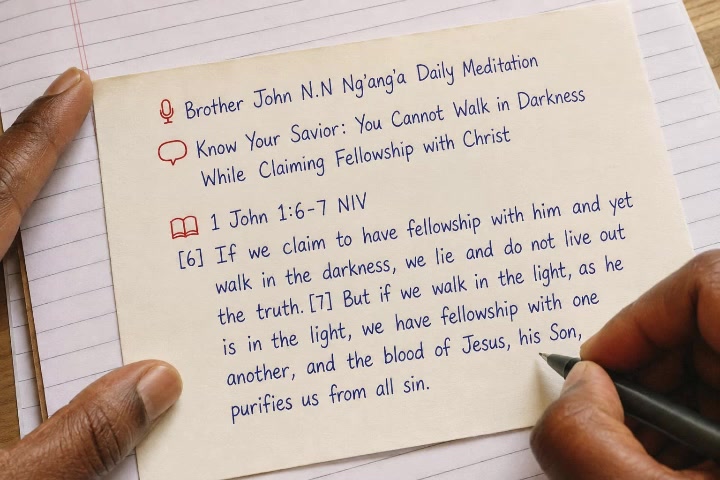 Brother John N.N Ng'ang'a Daily Meditation
Know Your Savior: You Cannot Walk in Darkness
While Claiming Fellowship with Christ
1 John 1:6-7 NIV
[6] If we claim to have fellowship with him and yet
walk in the darkness, we lie and do not live out
the truth. [7] But if we walk in the light, as he
is in the light, we have fellowship with one
another, and the blood of Jesus, his Son,
purifies us from all sin.